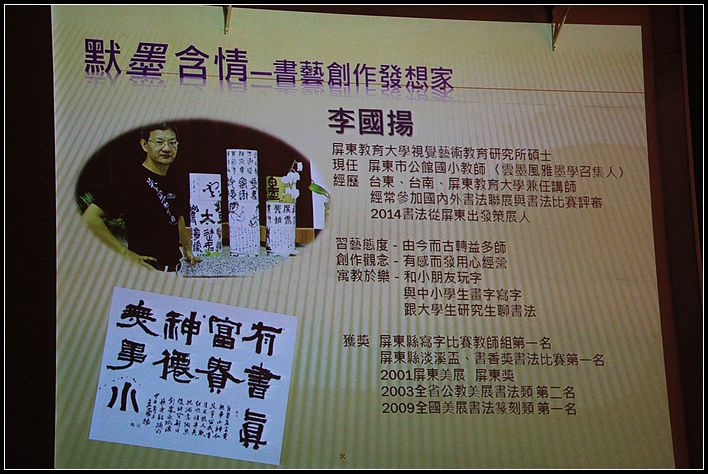 默墨含情—書藝創作發想家
李國揚
屏東教育大學視覺藝術教育研究所碩士
現任 屏東市公館國小教師 〈雲墨風雅墨學召集人〉
經歷 台東、台南、屏東教育大學兼任講師
經常參加國內外書法聯展與書法比賽評審
2014書法從屏東出發策展人
習藝態度 - 由今而古轉益多師
創作觀念 - 有感而發用心經營
寓教於樂 - 和小朋友玩字
與中小學生畫字寫字
跟大學生研究生聊書法
獲獎 屏東縣寫字比賽教師組第一名
屏東縣淡溪盃、書香獎書法比賽第一名
2001屏東美展 屏東獎
2003全省公教美展書法類 第二名
2009全國美展書法篆刻類 第一名
有書真
富貴
神僊
無事小